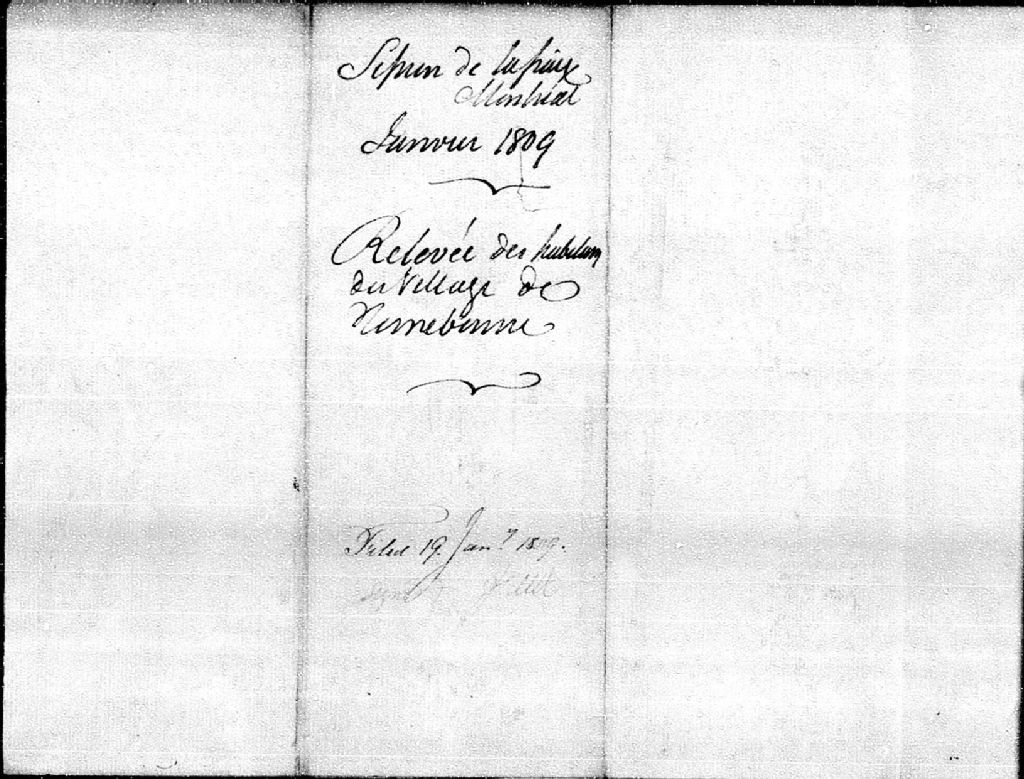 Session de la paix
Montréal
Janvier 1809
Relevée des habitans
du Village de
Terrebonne
Filed 19. Jan.y 1809.